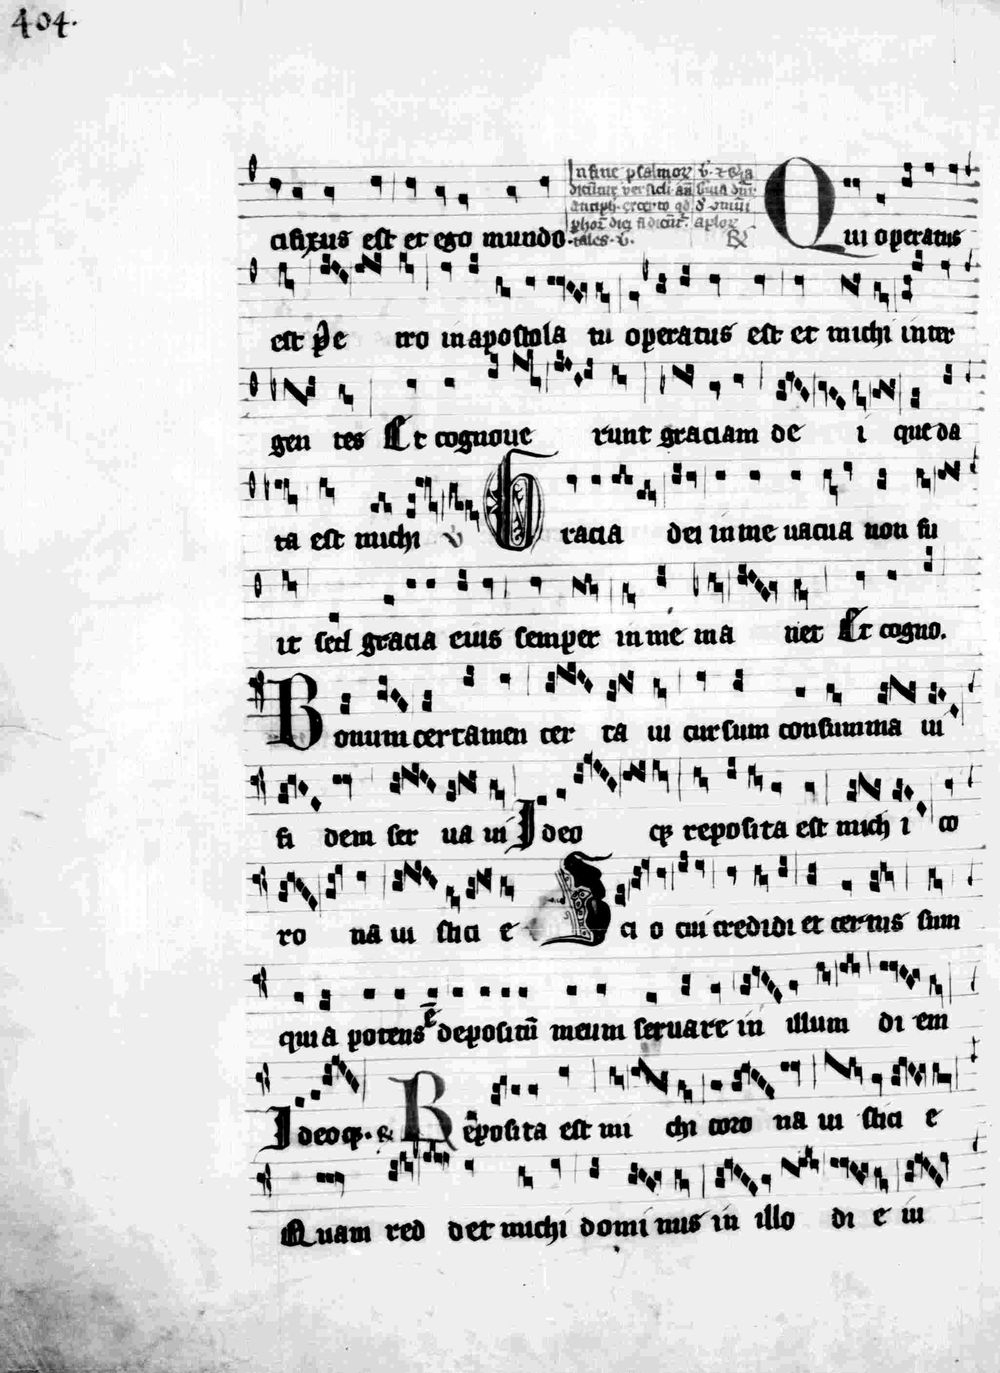 404.
In fine psalmorꝝ
cifixus est et ego mundo. tales. v̄. ℟ Qui operatus
est petro in apostola tu operatus est et michi inter
gen tes Et cognoue runt graciam de i que da
ta est michi v Gracia dei in me uacua non fu
it sed gracia eius semper in me ma net Et cogno.
Bonum certamen cer ta ui cursum consumma ui
fi dem ser ua ui Ideo qꝫ reposita est mich i co
ro na iu stici e Scio cui credidi et certus sum
quia potens ē depositū meum seruare in illum di em
Ideo qꝫ. ℟ Reposita est mi chi coro na iu stici e
Quam red det michi domi nus in illo di e iu